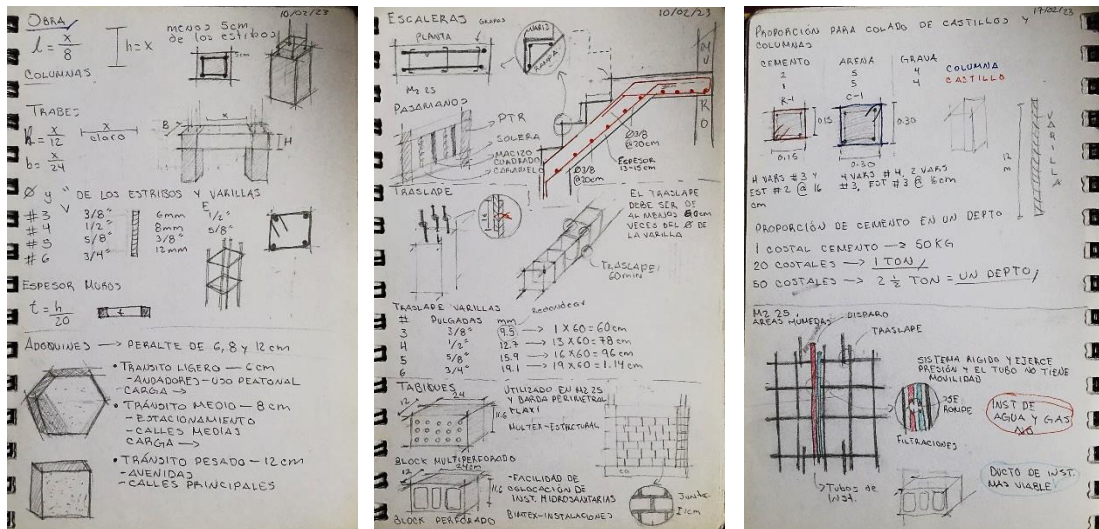 OBRA
10/02/23
l = x/8
h=x
menos 5cm
de los estribos
5cm
COLUMNAS
TRABES
h = x/12
x
claro
b = x/24
B
x
H
Ø y " DE LOS ESTRIBOS Y VARILLAS
V
E
#3 3/8" 6mm 1/2"
#4 1/2" 8mm 5/8"
#5 5/8" 3/8"
#6 3/4" 12mm
ESPESOR MUROS
t = h/20
t
ADOQUINES → PERALTE DE 6, 8 y 12 cm
• TRANSITO LIGERO — 6 cm
- ANDADORES - USO PEATONAL
CARGA →
• TRÁNSITO MEDIO — 8 cm
- ESTACIONAMIENTO
- CALLES MEDIAS
CARGA →
• TRÁNSITO PESADO - 12 cm
- AVENIDAS
- CALLES PRINCIPALES
ESCALERAS
10/02/23
PLANTA
NARIZ
RAMPA
MZ 25
MURO
PASAMANOS
PTR
SOLERA
MACIZO
CUADRADO
CARAMELO
Ø3/8
@20cm
ESPESOR
13-15cm
Ø3/8
@20cm
TRASLAPE
EL TRASLAPE
DEBE SER DE
AL MENOS 60cm
VECES DEL Ø DE
LA VARILLA
TRASLAPE
60min
TRASLAPE VARILLAS
Redondear
# PULGADAS mm
3 3/8" 9.5 → 1 X 60 = 60 cm
4 1/2" 12.7 → 13 X 60 = 78 cm
5 5/8" 15.9 → 16 X 60 = 96 cm
6 3/4" 19.1 → 19 X 60 = 1.14 cm
TABIQUES
UTILIZADO EN MZ 25
Y BARDA PERIMETRAL
TLAXI
MULTEX-ESTRUCTURAL
12
24
11.6
BLOCK MULTIPERFORADO
24cm
11.6
- FACILIDAD DE
COLOCACIÓN DE
INST. HIDROSANITARIAS
BINTEX-INSTALACIONES
BLOCK PERFORADO
Junta
1cm
17/02/23
PROPORCIÓN PARA COLADO DE CASTILLOS Y
COLUMNAS
CEMENTO ARENA GRAVA
2 5 4 COLUMNA
1 5 4 CASTILLO
K-1 C-1
0.15
0.30
0.15
0.30
VARILLA
12 m
4 VARS #3 Y
EST #2 @ 16
cm
4 VARS #4, 2 VARS
#3, EST #3 @ 6cm
PROPORCIÓN DE CEMENTO EN UN DEPTO
1 COSTAL CEMENTO → 50 KG
20 COSTALES → 1 TON
50 COSTALES → 2 1/2 TON = UN DEPTO
MZ 25
AREAS HUMEDAS
DISPARO
TRASLAPE
SISTEMA RIGIDO Y EJERCE
PRESIÓN Y EL TUBO NO TIENE
MOVILIDAD
SE
ROMPE
FILTRACIONES
INST DE
AGUA Y GAS
NO
Tubos de
Inst.
DUCTO DE INST.
MAS VIABLE